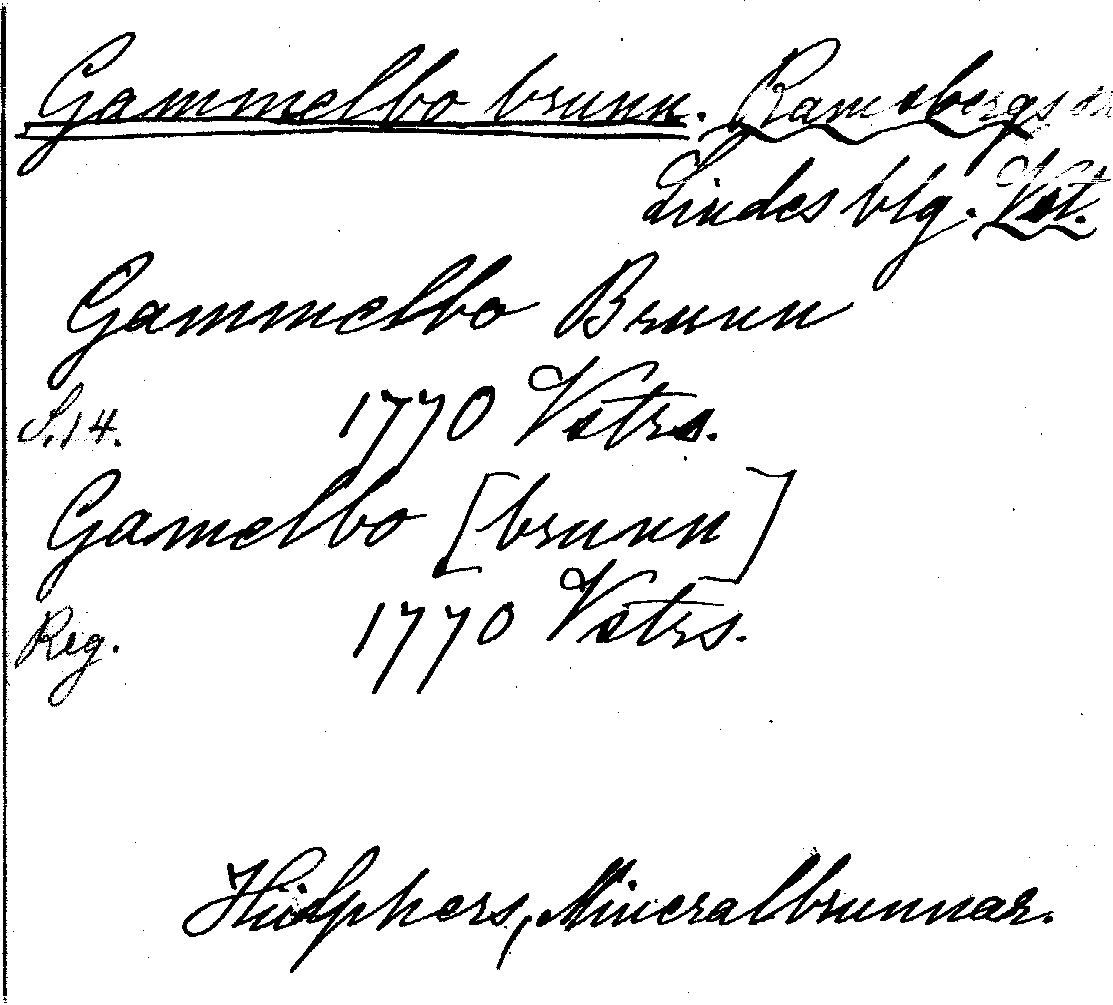 Gammelbo brunn. Ramsbergs sn
Lindes blg. Vst.
Gammelbo Brunn
S. 14. 1770 Vstrs.
Gamelbo [brunn]
Reg. 1770 Vstrs.
Hülphers, Mineralbrunnar.